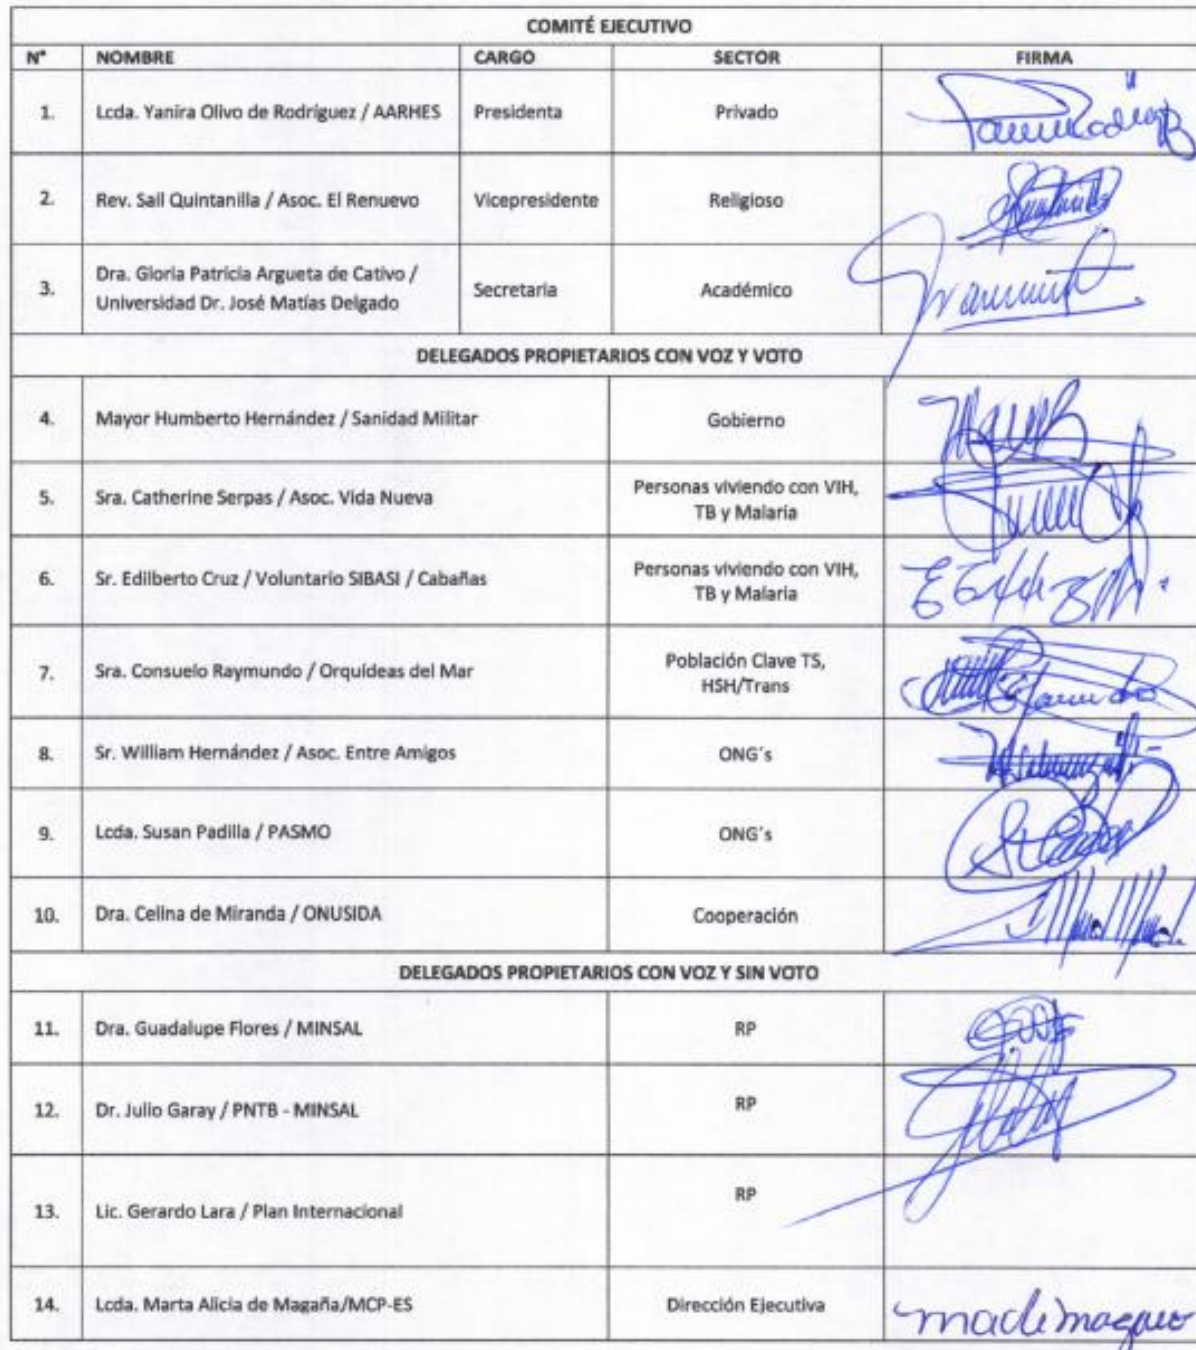 COMITÉ EJECUTIVO
N° NOMBRE CARGO SECTOR FIRMA
1. Lcda. Yanira Olivo de Rodríguez / AARHES Presidenta Privado
2. Rev. Sail Quintanilla / Asoc. El Renuevo Vicepresidente Religioso
3. Dra. Gloria Patricia Argueta de Cativo /
Universidad Dr. José Matías Delgado Secretaria Académico
DELEGADOS PROPIETARIOS CON VOZ Y VOTO
4. Mayor Humberto Hernández / Sanidad Militar Gobierno
5. Sra. Catherine Serpas / Asoc. Vida Nueva Personas viviendo con VIH,
TB y Malaria
6. Sr. Edilberto Cruz / Voluntario SIBASI / Cabañas Personas viviendo con VIH,
TB y Malaria
7. Sra. Consuelo Raymundo / Orquídeas del Mar Población Clave TS,
HSH/Trans
8. Sr. William Hernández / Asoc. Entre Amigos ONG´s
9. Lcda. Susan Padilla / PASMO ONG´s
10. Dra. Celina de Miranda / ONUSIDA Cooperación
DELEGADOS PROPIETARIOS CON VOZ Y SIN VOTO
11. Dra. Guadalupe Flores / MINSAL RP
12. Dr. Julio Garay / PNTB - MINSAL RP
13. Lic. Gerardo Lara / Plan Internacional RP
14. Lcda. Marta Alicia de Magaña/MCP-ES Dirección Ejecutiva